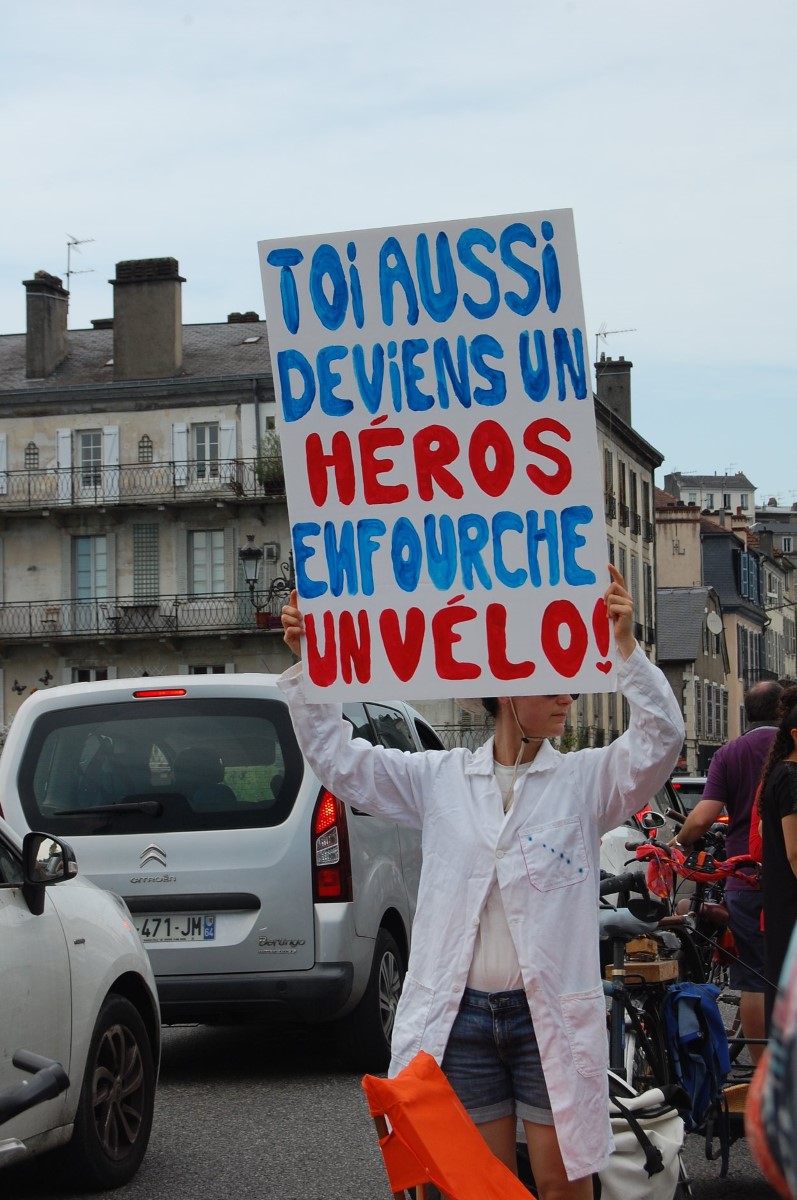 TOi AUSSi
DEViENS UN
HÉROS
ENFOURCHE
UN VÉLO!
CITROËN
471-JM
64
Berlingo